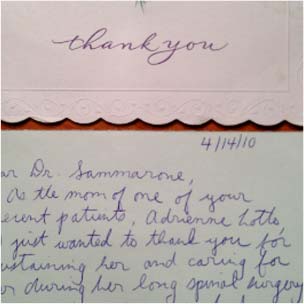 thank you
4/14/10
ar Dr. Sammarone,
As the mom of one of your
ecent patients, Adrienne Lotto,
just wanted to thank you for
ustaining her and caring for
er during her long spinal surgery